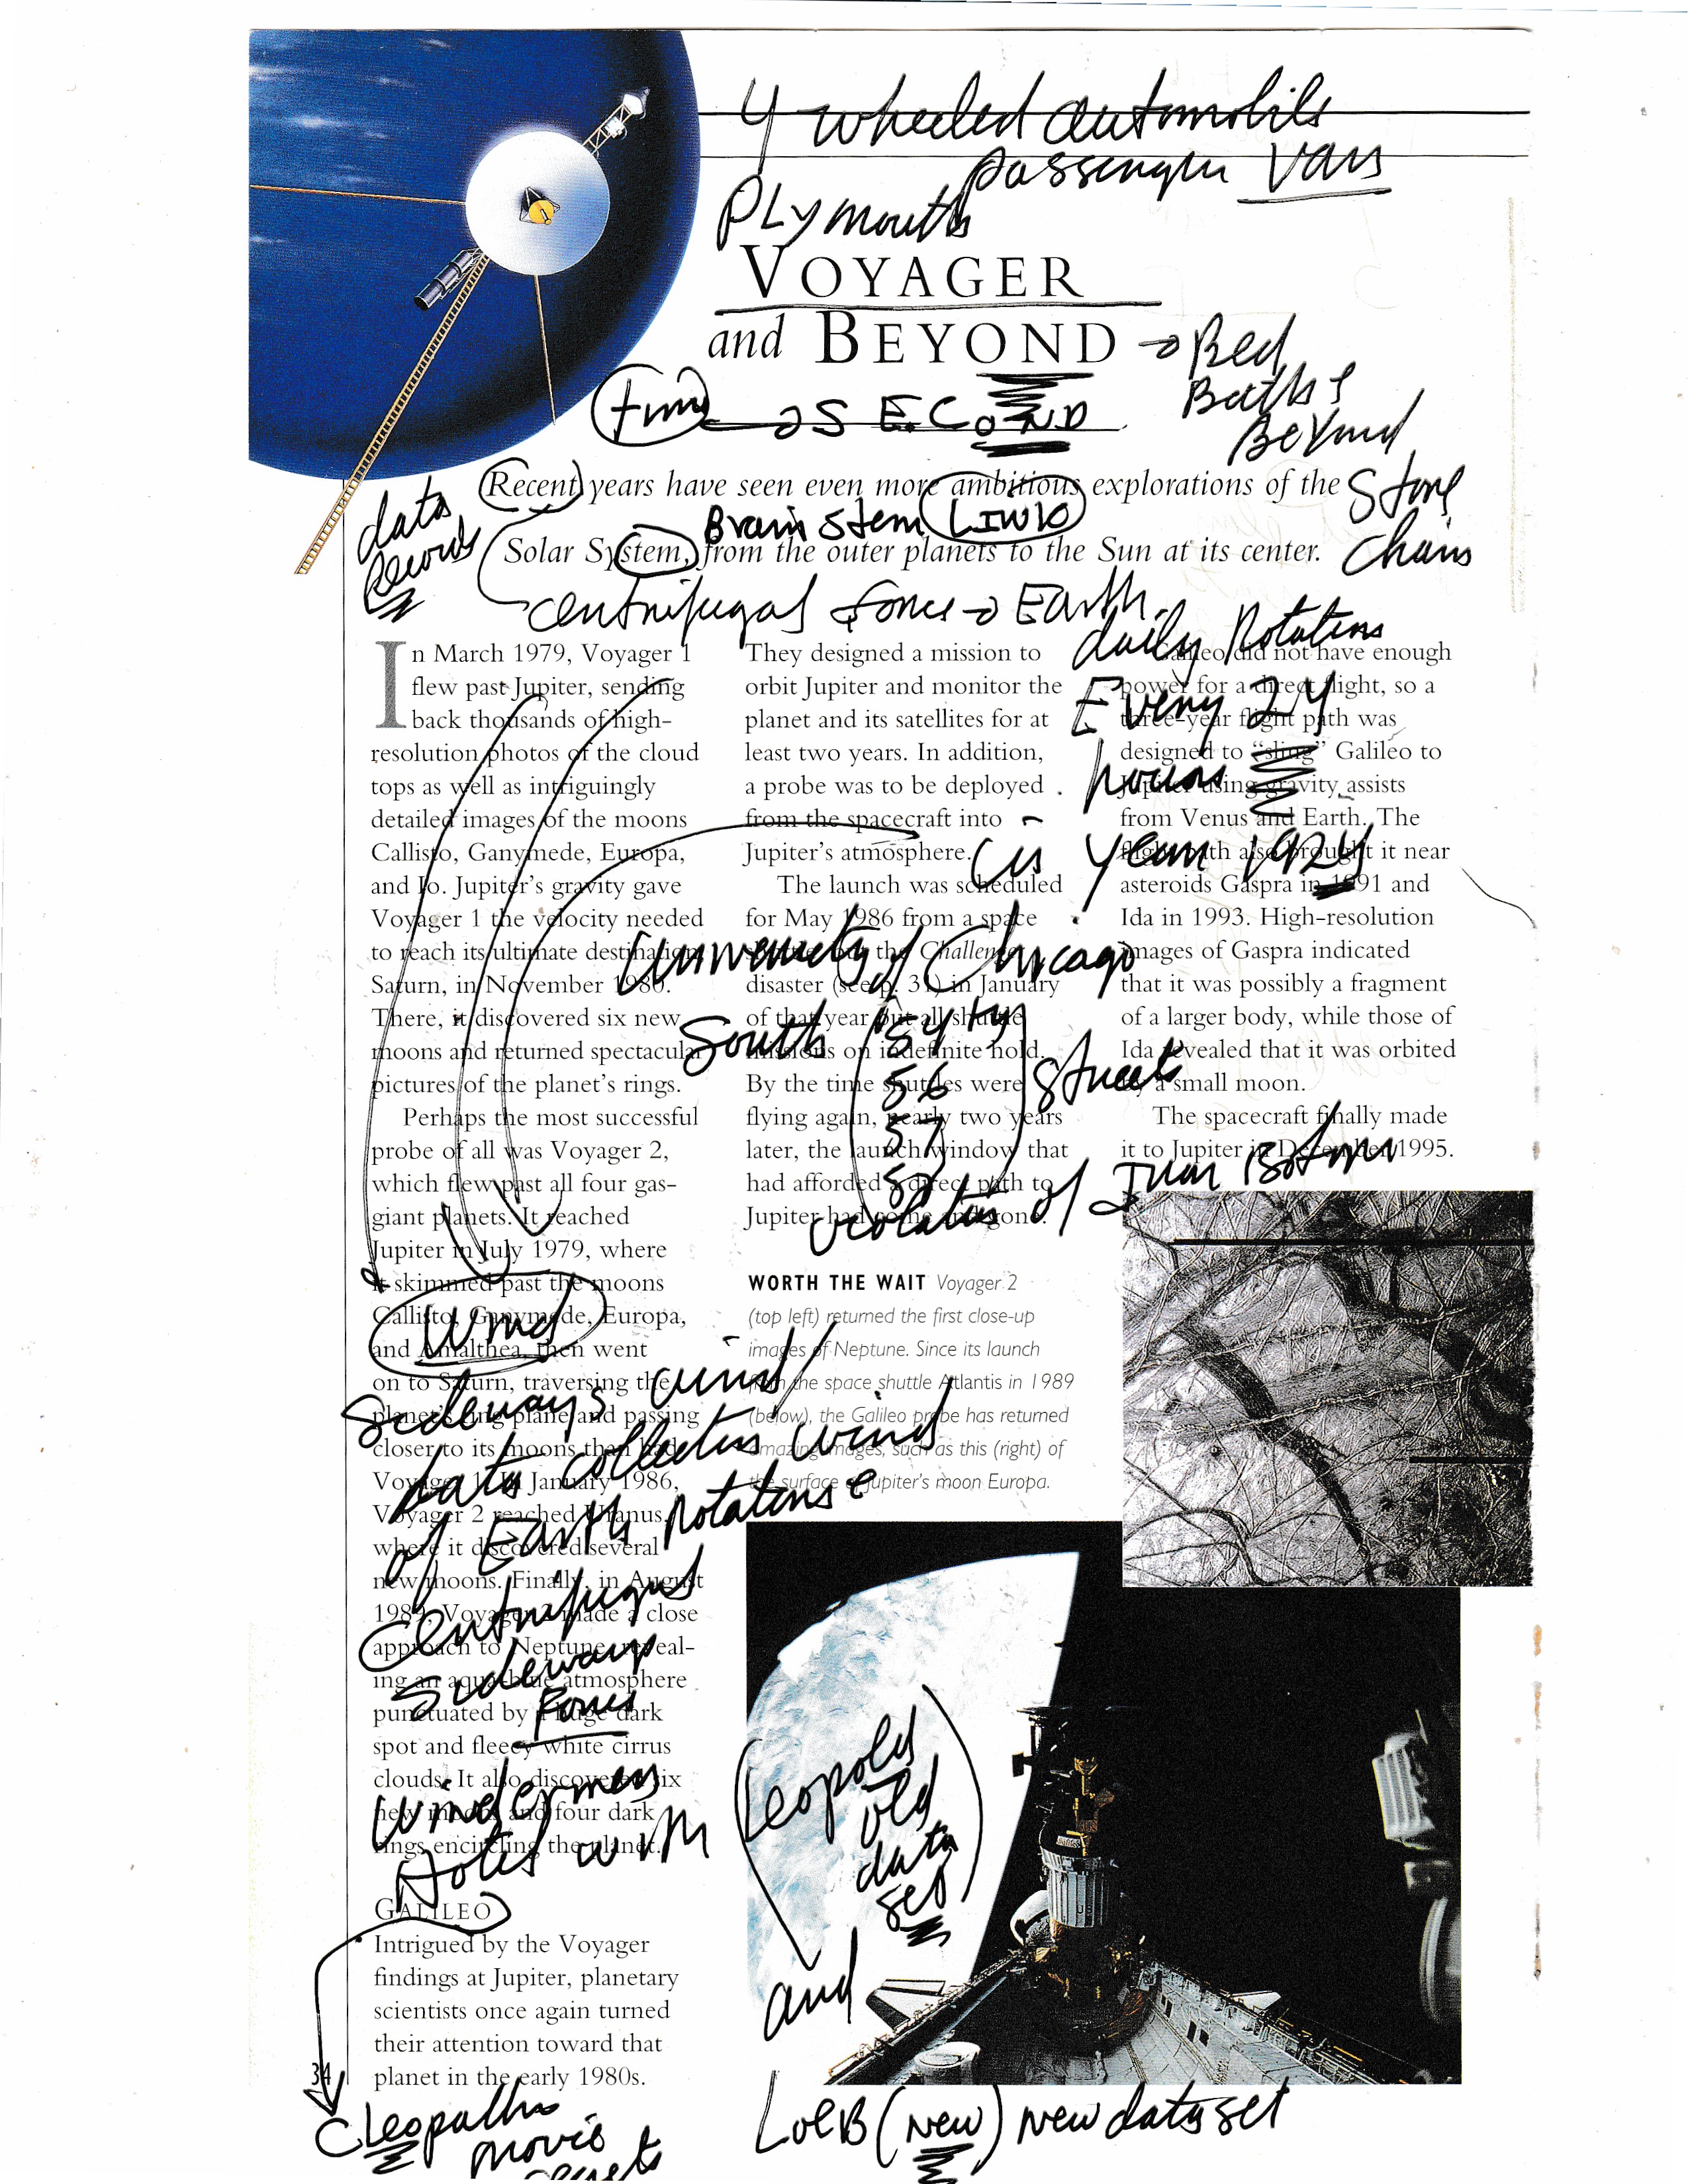 4 wheeled automobile
passenger vans
PLymouth
VOYAGER
and BEYOND → Bed
Baths &
Beyond
Store
chains
time → S E.CoND
data
records
Recent years have seen even more ambitious explorations of the
Brain stem
Solar System, from the outer planets to the Sun at its center.
centrifugal force → Earth
daily Rotations
Every 24
hours
(is year 1924
In March 1979, Voyager 1
flew past Jupiter, sending
back thousands of high-
resolution photos of the cloud
tops as well as intriguingly
detailed images of the moons
Callisto, Ganymede, Europa,
and Io. Jupiter's gravity gave
Voyager 1 the velocity needed
to reach its ultimate destination,
Saturn, in November 1980.
There, it discovered six new
moons and returned spectacular
pictures of the planet's rings.
Perhaps the most successful
probe of all was Voyager 2,
which flew past all four gas-
giant planets. It reached
Jupiter in July 1979, where
it skimmed past the moons
Callisto, Ganymede, Europa,
and Amalthea, then went
on to Saturn, traversing the
planet's ring plane and passing
closer to its moons than had
Voyager 1. In January 1986,
Voyager 2 reached Uranus,
where it discovered several
new moons. Finally, in August
1989, Voyager 2 made a close
approach to Neptune, reveal-
ing an aqua-blue atmosphere
punctuated by a huge dark
spot and fleecy white cirrus
clouds. It also discovered six
new moons and four dark
rings encircling the planet.
GALILEO
Intrigued by the Voyager
findings at Jupiter, planetary
scientists once again turned
their attention toward that
planet in the early 1980s.
34
They designed a mission to
orbit Jupiter and monitor the
planet and its satellites for at
least two years. In addition,
a probe was to be deployed
from the spacecraft into
Jupiter's atmosphere.
The launch was scheduled
for May 1986 from a space
shuttle, but the Challenger
disaster (see p. 31) in January
of that year put all shuttle
missions on indefinite hold.
By the time shuttles were
flying again, nearly two years
later, the launch window that
had afforded a direct path to
Jupiter had come and gone.
Galileo did not have enough
power for a direct flight, so a
three-year flight path was
designed to “sling” Galileo to
Jupiter using gravity assists
from Venus and Earth. The
flight path also brought it near
asteroids Gaspra in 1991 and
Ida in 1993. High-resolution
images of Gaspra indicated
that it was possibly a fragment
of a larger body, while those of
Ida revealed that it was orbited
by a small moon.
The spacecraft finally made
it to Jupiter in December 1995.
University of Chicago
South
56
57
Street
of Juan
WORTH THE WAIT Voyager 2
(top left) returned the first close-up
images of Neptune. Since its launch
from the space shuttle Atlantis in 1989
(below), the Galileo probe has returned
amazing images, such as this (right) of
the surface of Jupiter's moon Europa.
Wind
Sideways wind
data collection wind
of Earth rotations &
Centrifugal
Sideways
Force
Windermere
Hotel with
(Leopold
old
data
set)
and
LoeB (new) new data set
Cleopatra
movie